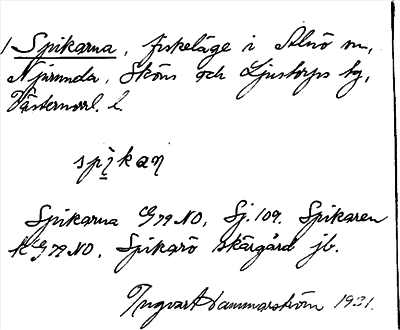 1 Spikarna, fiskeläge i Alnö sn,
Njurunda, Sköns och Ljustorps tg,
Västernorrl. l.
spikaṇ
Spikarna G79 NO, Sj. 109. Spikaren
k G79 NO, Spikarö skärgård jb.
Ingvart Hammarström 1931.